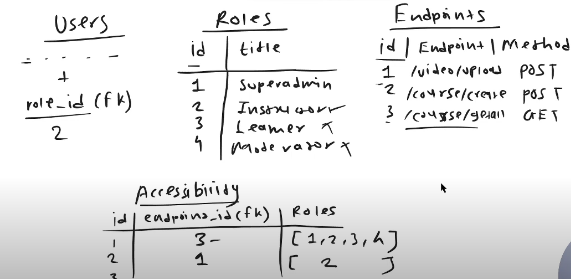 Users
- - - - - -
+
role_id (fk)
2
Roles
id | title
1 | Superadmin
2 | Instructor
3 | Learner x
4 | Moderator x
Endpoints
id | Endpoint | Method
1 /video/upload POST
2 /course/create POST
3 /course/getall GET
Accessibility
id | endpoint_id (fk) | Roles
1 | 3 - | [1, 2, 3, 4]
2 | 1 | [ 2 ]
3